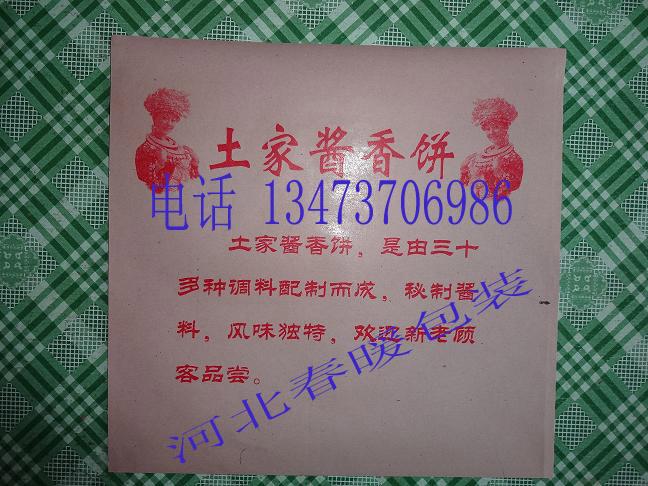 土家酱香饼
电话 13473706986
土家酱香饼，是由三十
多种调料配制而成，秘制酱
料，风味独特，欢迎新老顾
客品尝。
河北春暖包装